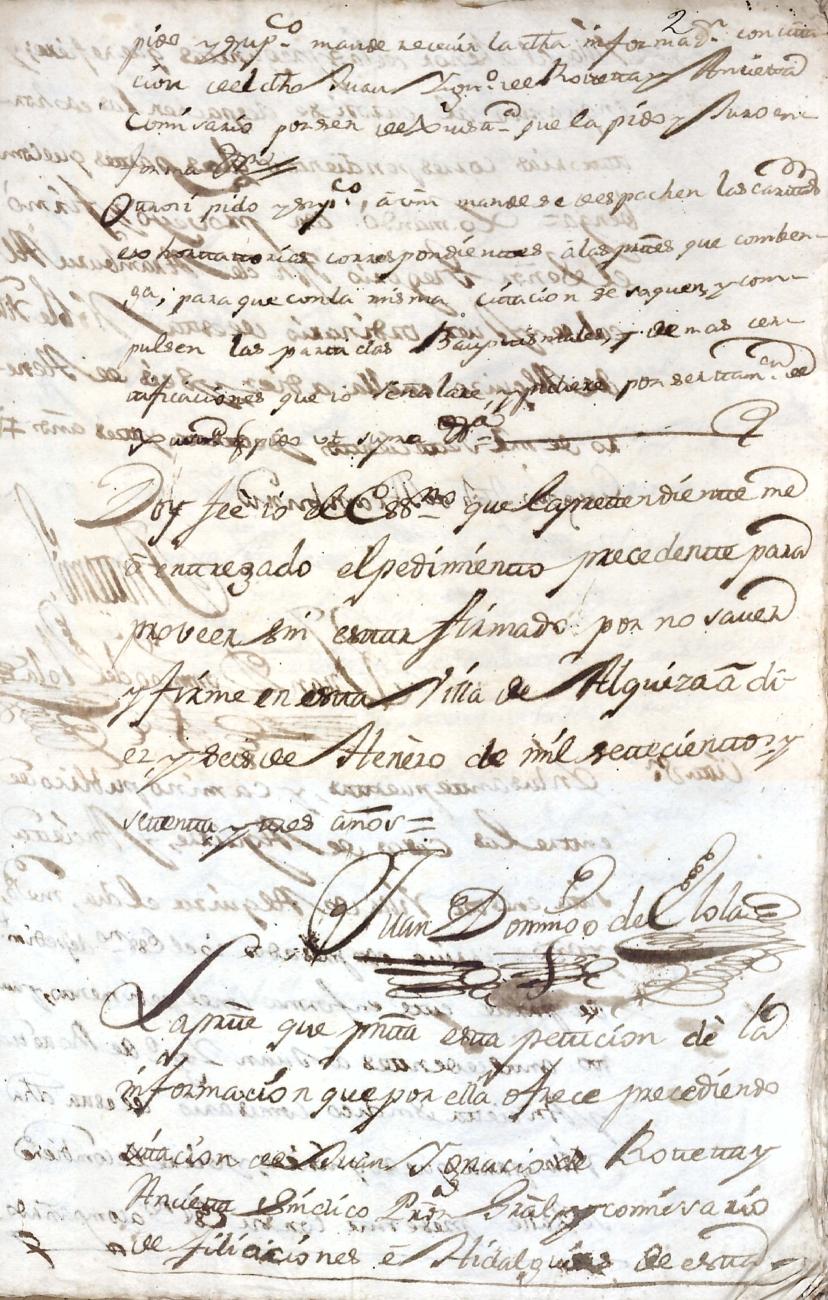 2
pido y sup.co mande recevir la dha informaz.n con cita
cion de el dho Juan Ign.o de Rovetta y Ancieta
Comisario por ser de Justi.a que la pido y Juro en
forma &ra
Otrosi pido y sup.co, â vm mande se despachen las cartas
exhortatorias correspondientes â las prtes que comben
ga, para que con la misma Citacion se saquen, y com
pulsen las partidas Baupttismales, y demas cer
tificaciones que io señalare y pidiere por ser tam.en de
pido ut supra
Doy fee io el Ess.no que la prettendientte me
â enttregado el pedimientto precedentte para
proveer sin esttar firmado por no saver
y firme en estta Villa de Alquiza â di
ez, y seis de Henèro de mil settecienttos, y
settentta y ttres años =
Juan Domingo de Elola
La prtte que pntta estta petticion dè la
informacion que por ella ofrece precediendo
cittacion de Juan Ignacio de Rovetta y
Ancietta Sindico Pror Gral, y comisario
de filiciciones e Hidalguias de estta